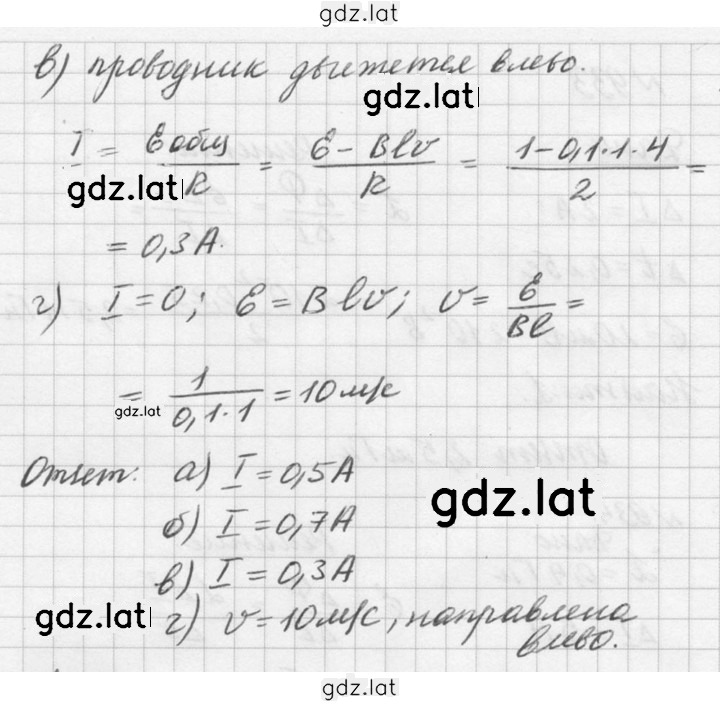 gdz.lat
в) проводник движется влево.
gdz.lat
I = Eобщ/R = (E - Blv)/R = (1-0,1·1·4)/2 =
gdz.lat
= 0,3А.
г) I = 0; E = Blv; v = E/Bl =
= 1/(0,1·1) = 10м/с
gdz.lat
Ответ: а) I = 0,5А
gdz.lat
б) I = 0,7А
в) I = 0,3А
gdz.lat
г) v = 10м/с, направлена
влево.
gdz.lat